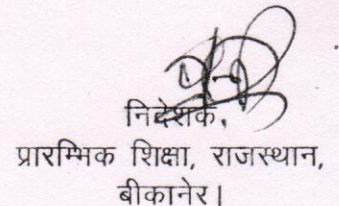 निदेशक,
प्रारम्भिक शिक्षा, राजस्थान,
बीकानेर।